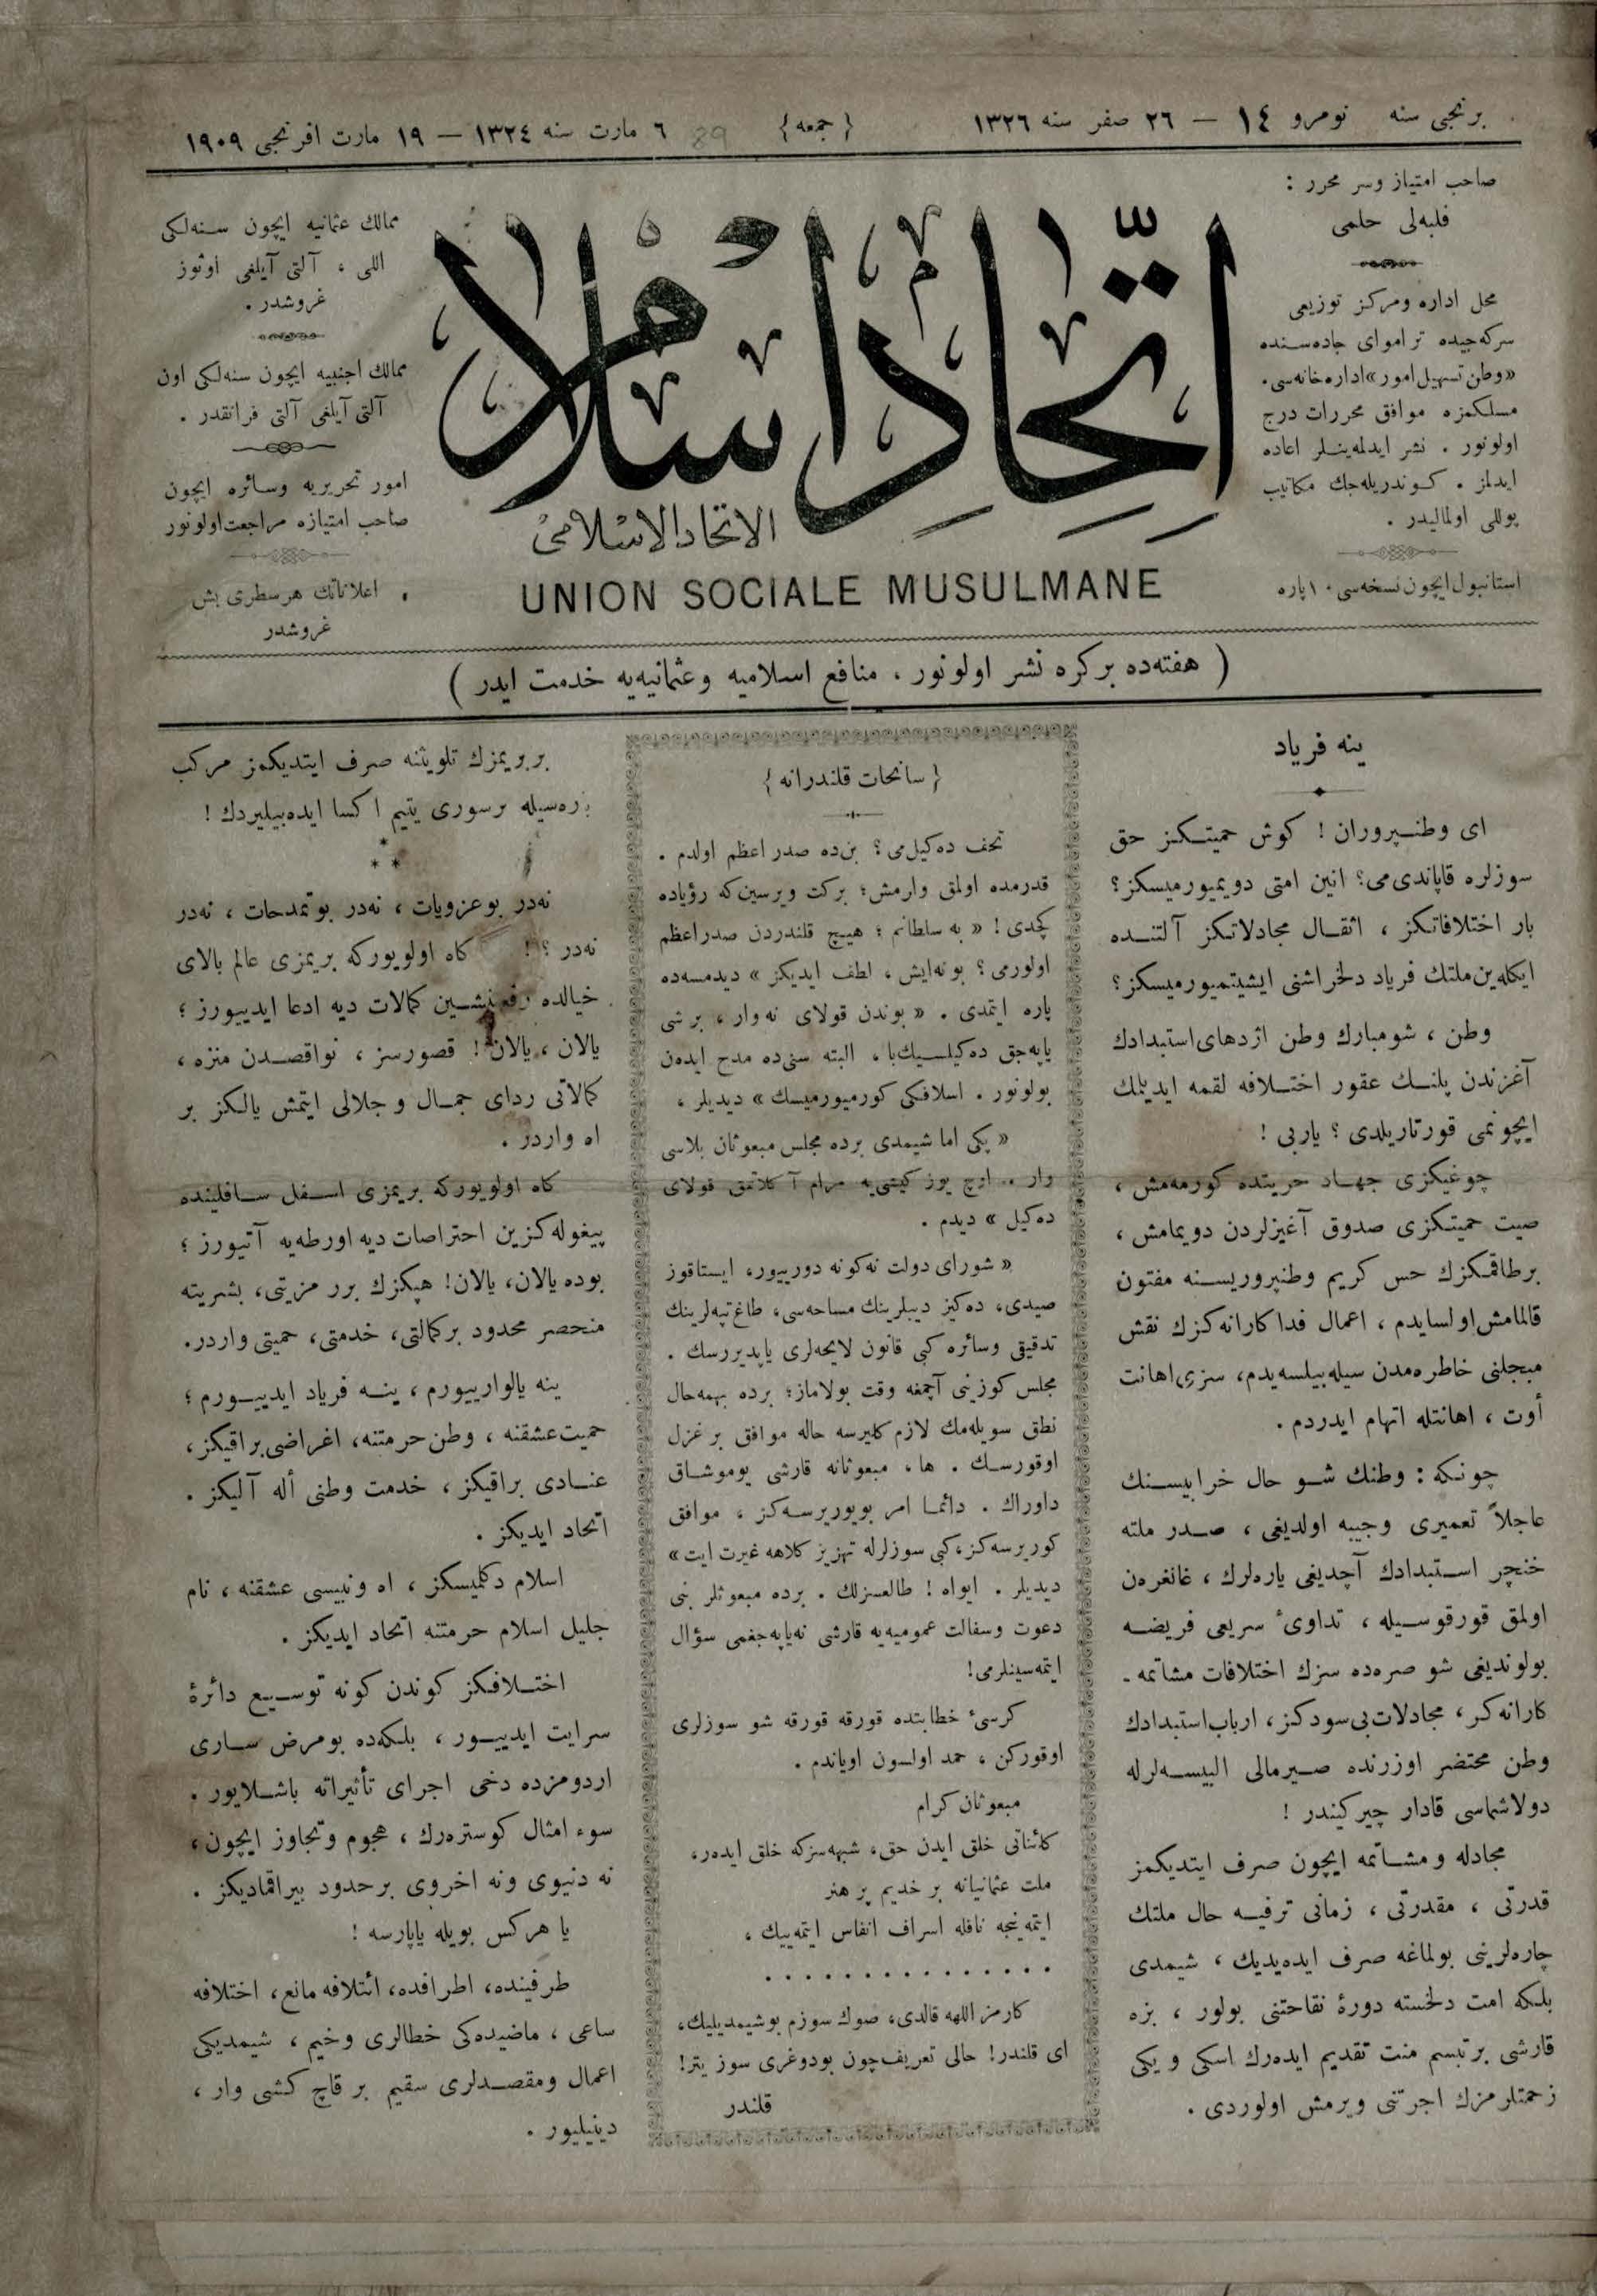 برنجی سنه نومرو ١٤ — ٢٦ صفر سنه ١٣٢٦ {جمعه} ٦ مارت سنه ١٣٢٤ — ١٩ مارت افرنجی ١٩٠٩
89
صاحب امتیاز وسر محرر :
فلبه‌لی حلمی
محل اداره ومرکز توزیعی
سرکه‌جیده تراموای جاده‌سنده
«وطن تسهیل امور» اداره‌خانه‌سی.
مسلکمزه موافق محررات درج
اولونور . نشر ایدلمه‌ینلر اعاده
ایدلمز . کوندریله‌جك مکاتیب
پوللی اولمالیدر .
استانبول ایچون نسخه‌سی ١٠ پاره
اتّحاد اسلام
الاتحاد الاسلامی
UNION SOCIALE MUSULMANE
ممالك عثمانیه ایچون سنه‌لکی
اللی ، آلتی آیلغی اوتوز
غروشدر .
ممالك اجنبیه ایچون سنه‌لکی اون
آلتی آیلغی آلتی فرانقدر .
امور تحریریه وسائره ایچون
صاحب امتیازه مراجعت اولونور
اعلاناتك هر سطری بش
غروشدر
( هفته‌ده بر کره نشر اولونور . منافع اسلامیه وعثمانیه‌یه خدمت ایدر )
ینه فریاد
ای وطنپروران ! کوش حمیتکز حق
سوزلره قاپاندی می؟ انین امتی دویمیورمیسکز؟
بار اختلافاتکز ، اثقال مجادلاتکز آلتنده
ایکله‌ین ملتك فریاد دلخراشنی ایشیتمیورمیسکز؟
وطن ، شو مبارك وطن اژدهای استبدادك
آغزندن پلنك عقور اختلافه لقمه ایدیلمك
ایچونمی قورتاریلدی ؟ یاربی !
چوغیکزی جهاد حریتده کورمه‌مش ،
صیت حمیتکزی صدوق آغیزلردن دویمامش ،
برطاقمکزك حس کریم وطنپروریسنه مفتون
قالمامش اولسایدم ، اعمال فداکارانه‌کزك نقش
مبجلنی خاطره‌مدن سیله‌بیلسه‌یدم، سزی اهانت
أوت ، اهانتله اتهام ایدردم .
چونکه : وطنك شو حال خرابیسنك
عاجلاً تعمیری وجیبه اولدیغی ، صدر ملته
خنچر استبدادك آچدیغی یاره‌لرك ، غانغره‌ن
اولمق قورقوسیله ، تداوئ سریعی فریضه
بولوندیغی شو صره‌ده سزك اختلافات مشاتمه-
کارانه‌کز، مجادلات بی‌سودکز، ارباب استبدادك
وطن محتضر اوزرنده صیرمالی البیسه‌لرله
دولاشماسی قادار چیرکیندر !
مجادله ومشاتمه ایچون صرف ایتدیکمز
قدرتی ، مقدرتی ، زمانی ترفیه حال ملتك
چاره‌لرینی بولماغه صرف ایده‌یدیك ، شیمدی
بلکه امت دلخسته دورۀ نقاحتنی بولور ، بزه
قارشی بر تبسم منت تقدیم ایده‌رك اسکی و یکی
زحمتلرمزك اجرتنی ویرمش اولوردی .
{سانحات قلندرانه}
تحف ده‌کیل‌می؟ بن‌ده صدر اعظم اولدم .
قدرمده اولمق وارمش؛ برکت ویرسین که رؤیاده
کچدی! « به سلطانم ؛ هیچ قلندردن صدراعظم
اولورمی؟ بونه‌ایش، لطف ایدیکز » دیدمسه‌ده
پاره ایتمدی . « بوندن قولای نه‌وار ، بر شی
یاپه‌جق ده‌کیلسیك یا، البته سنی ده مدح ایدەن
بولونور . اسلافکی کورمیورمیسك » دیدیلر ،
« پکی اما شیمدی برده مجلس مبعوثان بلاسی
وار .. اوچ یوز کیشی‌یه مرام آکلاتمق قولای
ده‌کیل » دیدم .
« شورای دولت نه‌کونه دورییور، ایستاقوز
صیدی، ده‌کیز دیبلرینك مساحه‌سی، طاغ تپه‌لرینك
تدقیقی وسائره کبی قانون لایحه‌لری یاپدیررسك .
مجلس کوزینی آچمغه وقت بولاماز؛ برده بهمه‌حال
نطق سویله‌مك لازم کلیرسه حاله موافق بر غزل
اوقورسك . ها، مبعوثانه قارشی یوموشاق
داوراك . دائما امر بویوررسه‌کز ، موافق
کوررسه‌کز، کبی سوزلرله تهزیز کلاهه غیرت ایت»
دیدیلر . ایواه ! طالعسزلك . برده مبعوثلر بنی
دعوت وسفالت عمومیه‌یه قارشی نه‌یاپه‌جغمی سؤال
ایتمه‌سینلرمی!
کرسیٔ خطابتده قورقه قورقه شو سوزلری
اوقورکن ، حمد اولسون اویاندم .
مبعوثان کرام
کائناتی خلق ایدن حق، شبهه‌سزکه خلق ایده‌ر،
ملت عثمانیانه بر خدیم پر هنر
ایتمه‌ینجه نافله اسراف انفاس ایتمه‌ییك ،
. . . . . . . . . . . . . . .
کارمز اللهه قالدی، صوك سوزم بوشیمدیلیك،
ای قلندر! حالی تعریف‌چون بودوغری سوز یتر!
قلندر
بربریمزك تلویثنه صرف ایتدیکمز مرکب
پاره‌سیله برسوری یتیم اکسا ایده‌بیلیردك !
* * *
نه‌در بوعزویات ، نه‌در بوتمدحات ، نه‌در
نه‌در ؟ ! کاه اولویورکه بریمزی عالم بالای
خیالده رفعنشین کمالات دیه ادعا ایدییورز ؛
یالان ، یالان ! قصورسز ، نواقصدن منزه ،
کمالاتی ردای جمال و جلالی ایتمش یالکز بر
اه واردر .
کاه اولویورکه بریمزی اسفل سافلینده
پیغوله‌کزین احتراصات دیه اورطه‌یه آتیورز ؛
بوده یالان، یالان! هپکزك برر مزیتی، بشریته
منحصر محدود برکمالتی، خدمتی، حمیتی واردر.
ینه یالوارییورم ، ینه فریاد ایدییورم ؛
حمیت عشقنه ، وطن حرمتنه، اغراضی براقیکز،
عنادی براقیکز ، خدمت وطنی أله آلیکز .
اتحاد ایدیکز .
اسلام دکلمیسکز ، اه ونبیسی عشقنه ، نام
جلیل اسلام حرمتنه اتحاد ایدیکز .
اختلافکز کوندن کونه توسیع دائرۀ
سرایت ایدییور ، بلکه‌ده بومرض ساری
اردومزده دخی اجرای تأثیراته باشلایور .
سوء امثال کوستره‌رك ، هجوم وتجاوز ایچون،
نه دنیوی ونه اخروی برحدود بیراقمادیکز .
یا هرکس بویله یاپارسه !
طرفینده، اطرافده، ائتلافه مانع، اختلافه
ساعی ، ماضیده‌کی خطالری وخیم ، شیمدیکی
اعمال ومقصدلری سقیم بر قاچ کشی وار ،
دینیلیور .